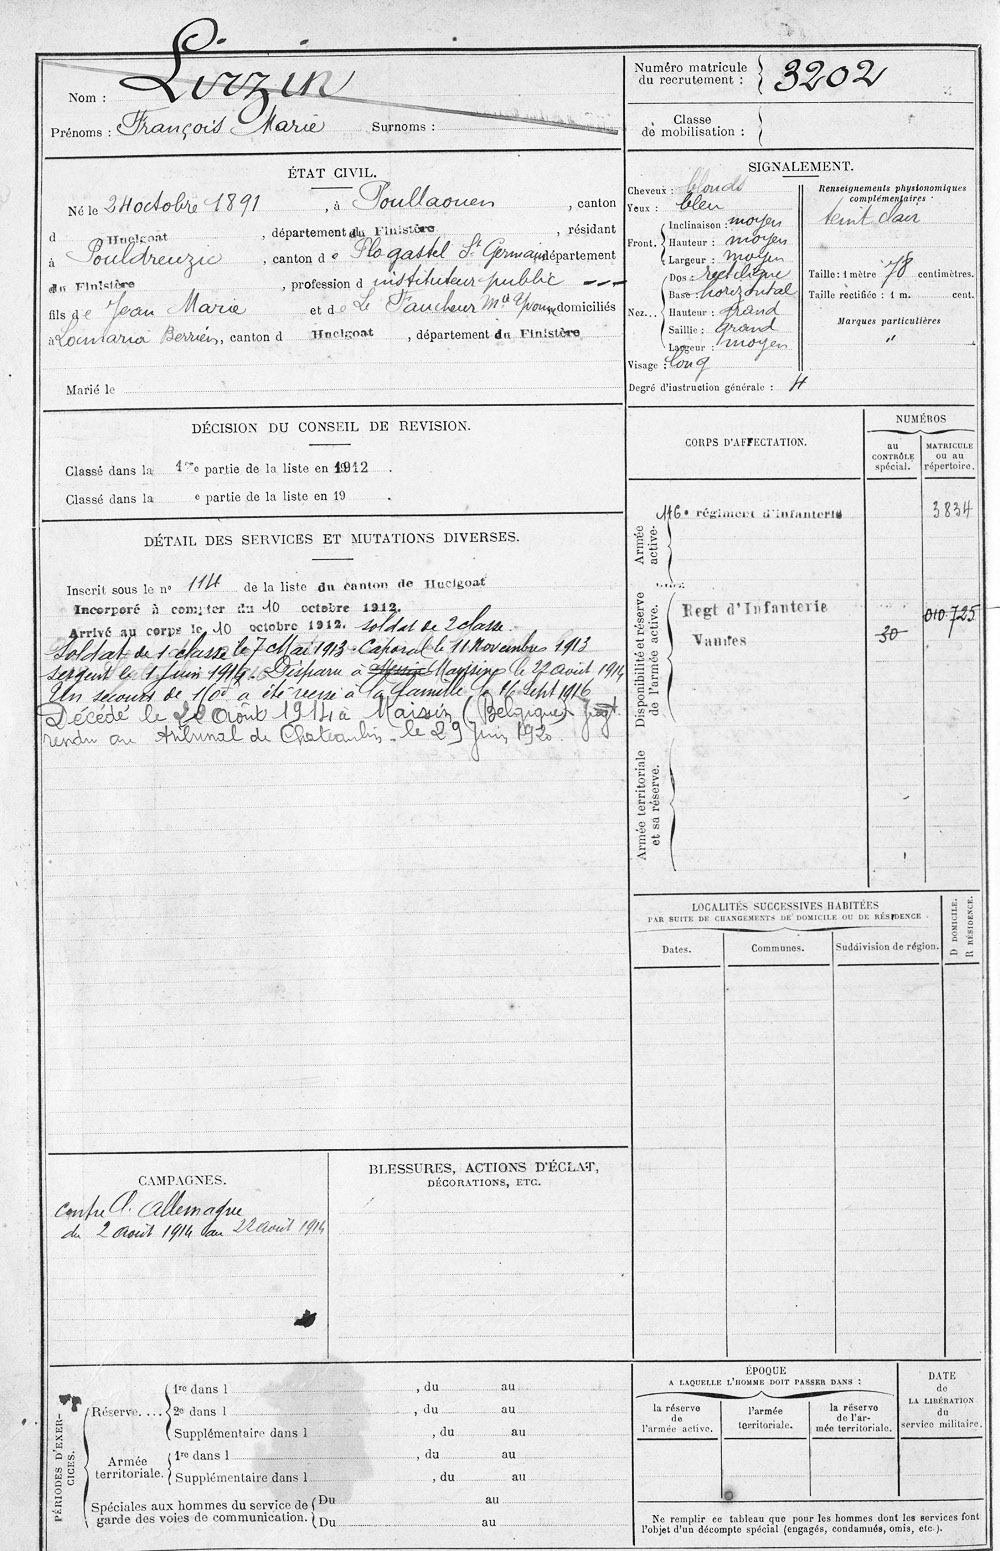 Nom : Lizzin
Prénoms : François Marie Surnoms :
Numéro matricule
du recrutement : 3202
Classe
de mobilisation :
ÉTAT CIVIL.
Né le 24 octobre 1891, à Poullaouen, canton
d Huelgoat, département du Finistère, résidant
à Pouldreuzic, canton de Plogastel St Germain département
du Finistère, profession d instituteur public
fils de Jean Marie et de Le Faucheur Mie Yvonne domiciliés
à Locmaria Berrien, canton d Huelgoat, département du Finistère
Marié le
SIGNALEMENT.
Cheveux : blonds
Yeux : bleu
Front. Inclinaison : moyen
Hauteur : moyen
Largeur : moyen
Nez... Dos : rectiligne
Base : horizontal
Hauteur : grand
Saillie : grand
Largeur : moyen
Visage : long
Renseignements physionomiques
complémentaires
teint clair
Taille : 1 mètre 78 centimètres.
Taille rectifiée : 1 m. cent.
Marques particulières
"
Degré d'instruction générale : 4
DÉCISION DU CONSEIL DE REVISION.
Classé dans la 1re partie de la liste en 1912.
Classé dans la e partie de la liste en 19 .
DÉTAIL DES SERVICES ET MUTATIONS DIVERSES.
Inscrit sous le no 114 de la liste du canton de Huelgoat
Incorporé à compter du 10 octobre 1912.
Arrivé au corps le 10 octobre 1912. soldat de 2 classe
Soldat de 1 classe le 7 Mai 1913 - Caporal le 11 Novembre 1913
sergent le 1 Juin 1914. Disparu à Mayssine le 22 août 1914
Un secours de 150f a été versé à la famille le 16 Sept 1916
Décédé le 22 Août 1914 à Maissin (Belgique) Jugt
rendu au tribunal de Chateaulin le 29 Juin 1920.
CORPS D'AFFECTATION.
NUMÉROS
au
CONTRÔLE
spécial.
MATRICULE
ou au
répertoire.
Armée
active.
116e régiment d'infanterie 3834
Disponibilité et réserve
de l'armée active.
Regt d'Infanterie 010.725
Vannes 30
Armée territoriale
et sa réserve.
LOCALITÉS SUCCESSIVES HABITÉES
PAR SUITE DE CHANGEMENTS DE DOMICILE OU DE RÉSIDENCE
Dates. Communes. Suddivision de région. D DOMICILE. R RÉSIDENCE.
CAMPAGNES.
contre l'Allemagne
du 2 août 1914 au 22 août 1914
BLESSURES, ACTIONS D'ÉCLAT,
DÉCORATIONS, ETC.
PÉRIODES D'EXER-
CICES.
Réserve.... 1re dans l , du au
2e dans l , du au
Supplémentaire dans l , du au
Armée
territoriale. 1re dans l , du au
Supplémentaire dans l , du au
Spéciales aux hommes du service de
garde des voies de communication. Du au
Du au
ÉPOQUE
A LAQUELLE L'HOMME DOIT PASSER DANS :
la réserve
de
l'armée active.
l'armée
territoriale.
la réserve
de l'ar-
mée territoriale.
DATE
de
LA LIBÉRATION
du
service militaire.
Ne remplir ce tableau que pour les hommes dont les services font
l'objet d'un décompte spécial (engagés, condamnés, omis, etc.).